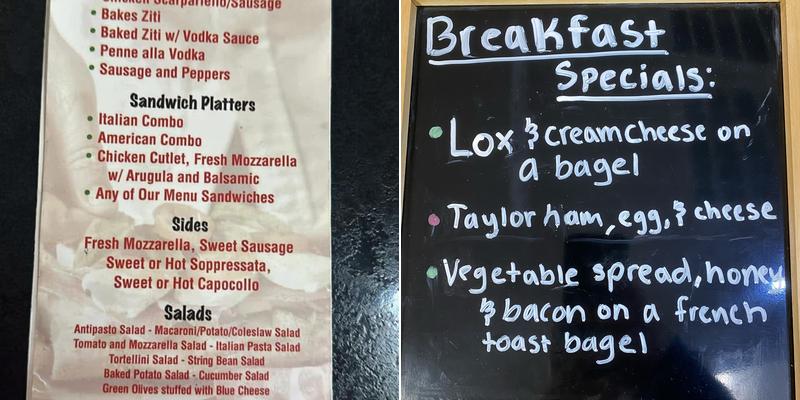 Chicken Scarpariello/Sausage
Bakes Ziti
Baked Ziti w/ Vodka Sauce
Penne alla Vodka
Sausage and Peppers
Sandwich Platters
Italian Combo
American Combo
Chicken Cutlet, Fresh Mozzarella
w/ Arugula and Balsamic
Any of Our Menu Sandwiches
Sides
Fresh Mozzarella, Sweet Sausage
Sweet or Hot Soppressata,
Sweet or Hot Capocollo
Salads
Antipasto Salad - Macaroni/Potato/Coleslaw Salad
Tomato and Mozzarella Salad - Italian Pasta Salad
Tortellini Salad - String Bean Salad
Baked Potato Salad - Cucumber Salad
Green Olives stuffed with Blue Cheese
Breakfast
Specials:
Lox & creamcheese on
a bagel
Taylor ham, egg, & cheese
Vegetable spread, honey
& bacon on a french
toast bagel